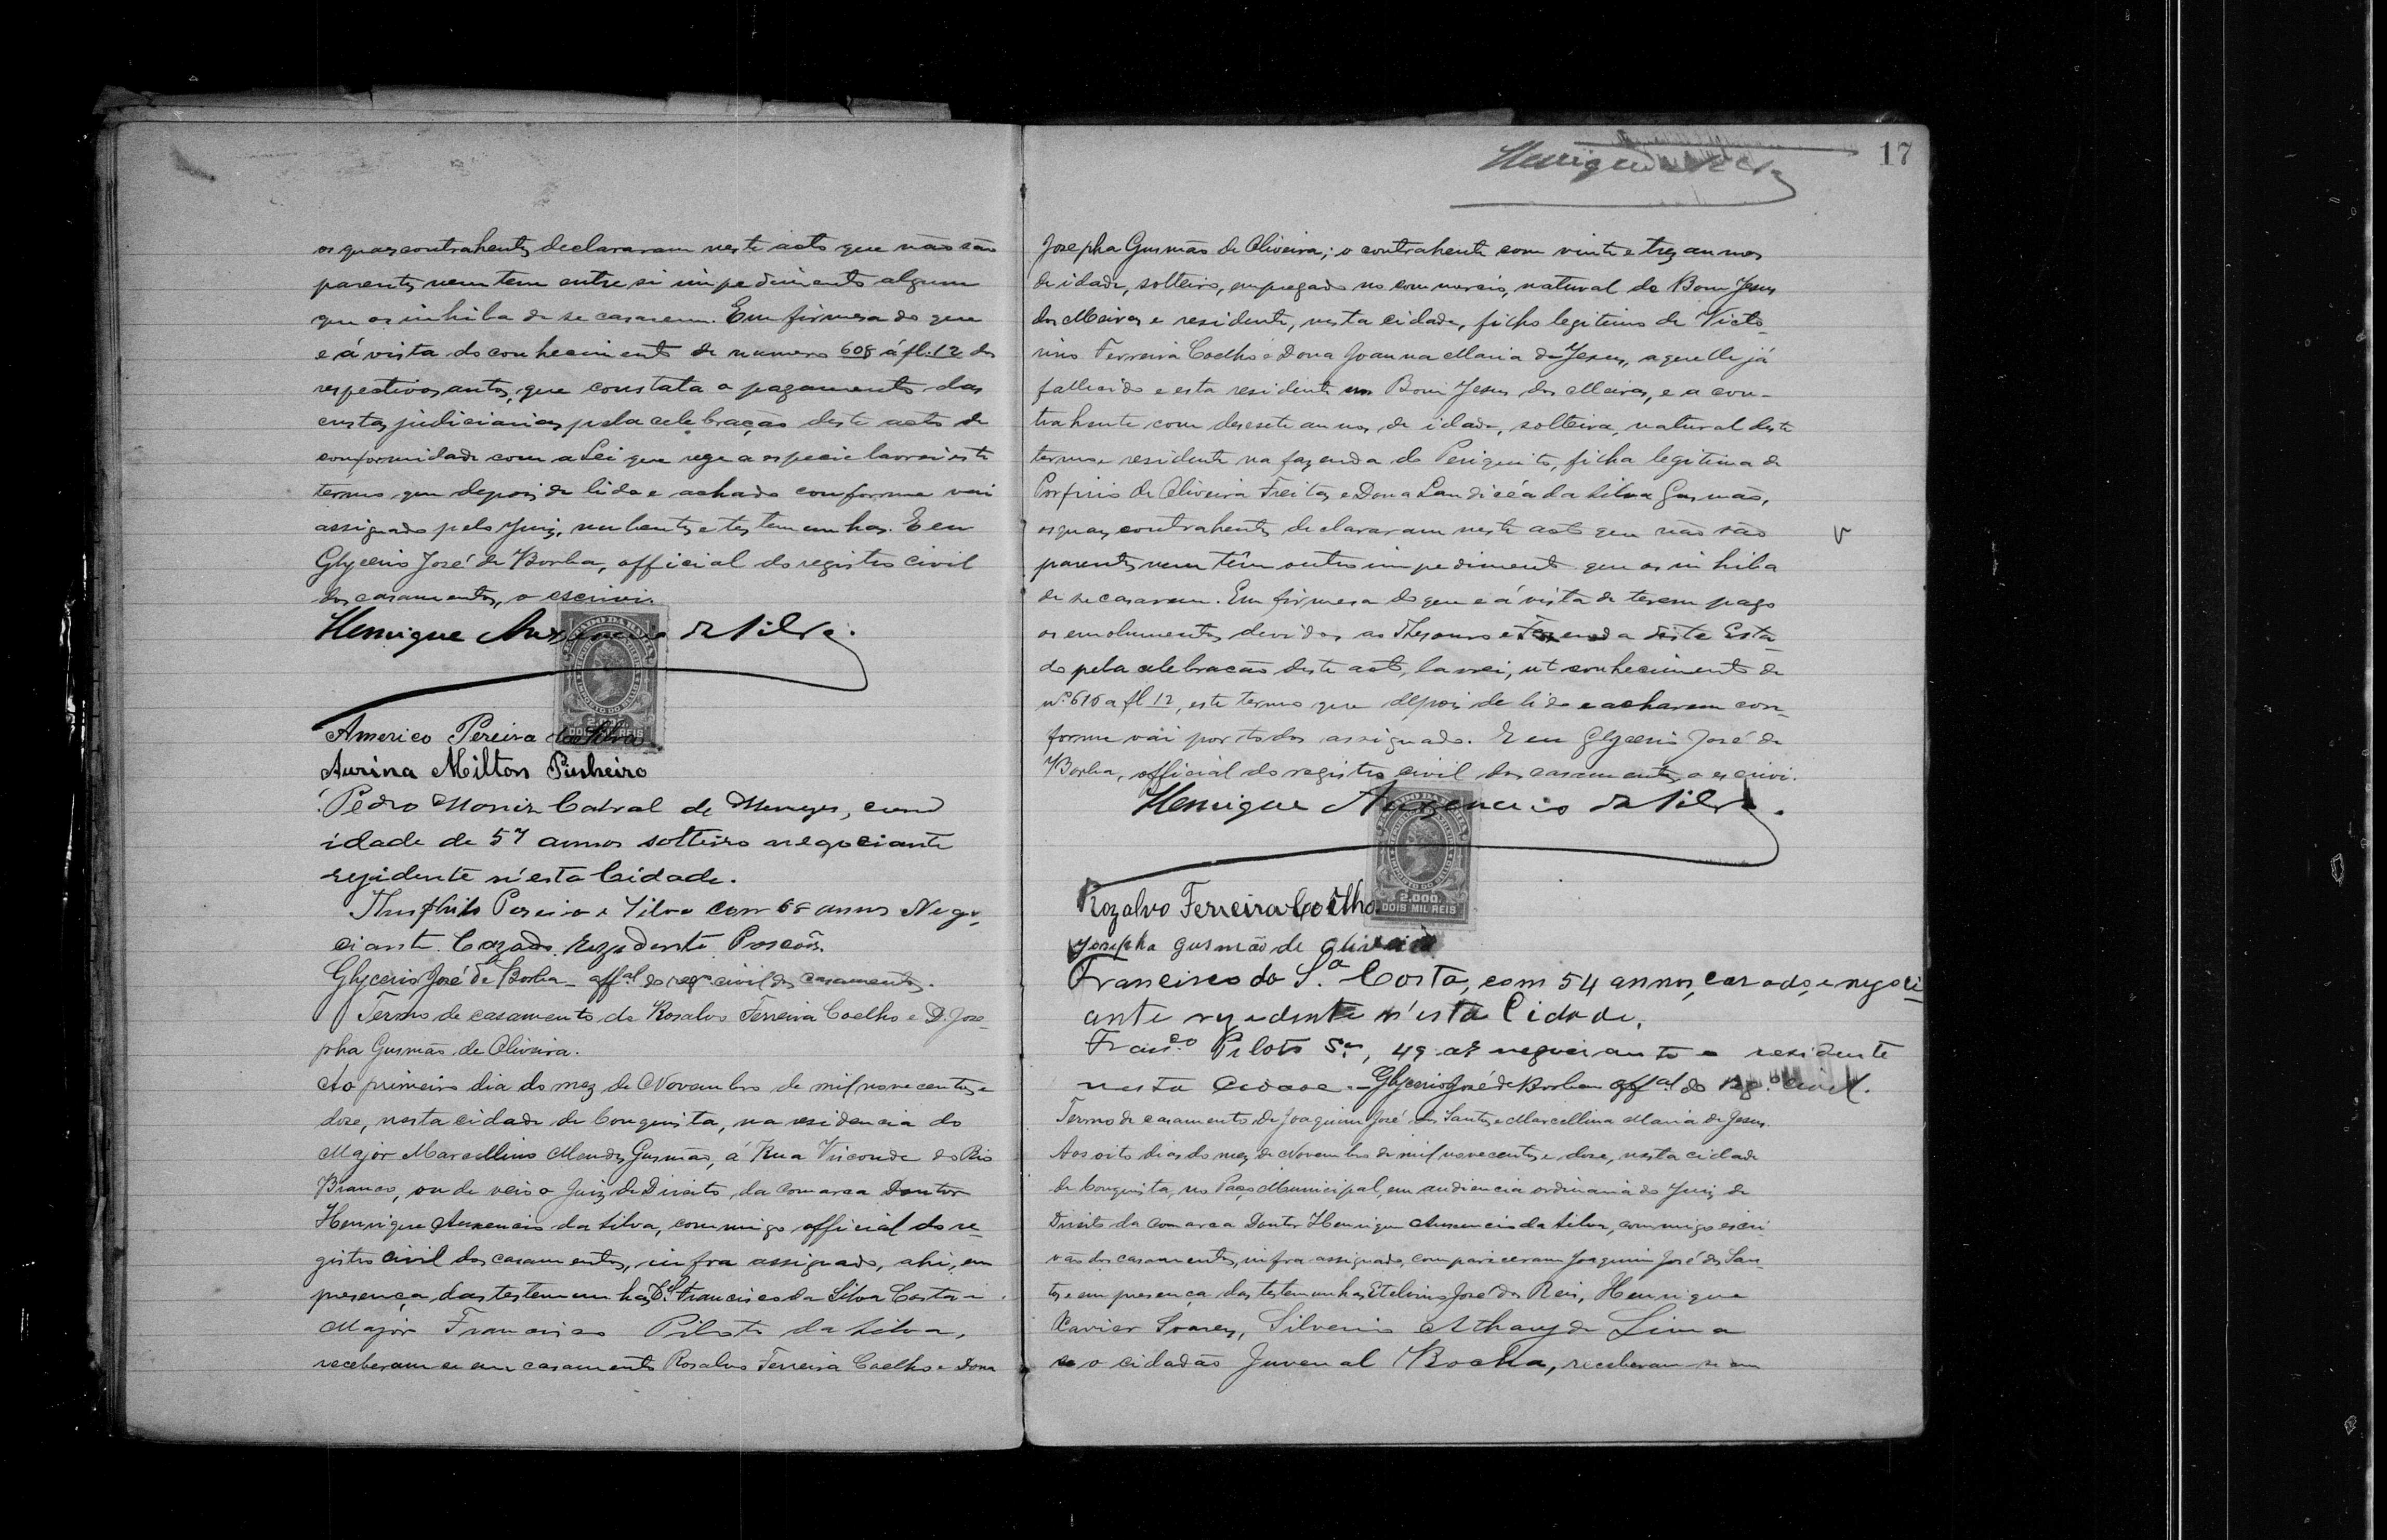 os quaes contrahentes declararam neste acto que não são
parentes nem tem entre si impedimento algum
que os inhiba de se casarem. Em firmesa do que
e á vista do conhecimento de numero 608 á fl. 12 dos
respectivos autos, que constata o pagamento das
custas judiciarias pela celebração deste acto de
conformidade com a Lei que rege a especie lavrei este
termo que depois de lido e achado conforme vai
assignado pelo Juiz, nubentes e testemunhas. E eu
Glycerio José de Borba, official do registro civil
dos casamentos, o escrivi.
Henrique Auxencio da Silva.
ESTADO DA BAHIA
IMPOSTO DO SELLO
DOIS MIL REIS
Americo Pereira da Silva
Aurina Milton Pinheiro
Pedro Moniz Cabral de Menezes, com
idade de 57 annos solteiro negociante
rezidente n'esta Cidade.
Pereira e Silva com 68 annos Nego-
ciante. Cazado. Rezidente
Glycerio José de Borba - offal do rego civil dos casamentos.
Termo de casamento de Rosalvo Ferreira Coelho e D. Jose-
pha Gusmão de Oliveira.
Ao primeiro dia do mez de Novembro de mil novecentos e
dose, nesta cidade de Conquista, na residencia do
Major Marcellino Mendes Gusmão, á Rua Visconde do Rio
Branco, onde veio o Juiz de Direito da Comarca Doutor
Henrique Auxencio da Silva, commigo official do re-
gistro civil dos casamentos, infra assignado, ahi, em
presença das testemunhas Cel. Francisco da Silva Costa e
Major Francisco Piloto da Silva,
receberam-se em casamento Rosalvo Ferreira Coelho e Dona
17
Henrique
Josepha Gusmão de Oliveira; o contrahente com vinte e tres annos
de idade, solteiro, empregado no commercio, natural de Bom Jesus
dos Meiras e residente, nesta cidade, filho legitimo de Victo-
rino Ferreira Coelho e Dona Joanna Maria de Jesus, aquelle já
fallecido e esta residente no Bom Jesus dos Meiras, e a con-
trahente com desesete annos de idade, solteira, natural deste
termo e residente na fazenda do Periquito, filha legitima de
Porfirio de Oliveira Freitas e Dona Laudicéa da Silva Gusmão,
os quaes contrahentes declararam neste acto que não são
parentes nem têm outro impedimento que os inhiba
de se casarem. Em firmesa do que e á vista de terem pago
os emolumentos devidos ao Thesouro e Fazenda deste Esta-
do pela celebração deste acto, lavrei, ut conhecimento de
nº 616 a fl 12, este termo que depois de lido e acharem con-
forme vai por todos assignado. E eu Glycerio José de
Borba, official do registro civil dos casamentos o escrivi.
Henrique Auxencio da Silva.
ESTADO DA BAHIA
IMPOSTO DO SELLO
2.000
DOIS MIL REIS
Rozalvo Ferreira Coêlho
Josepha Gusmão de Oliveira
Francisco da Sa. Costa, com 54 annos, casado, e negoci-
ante rezedente n'esta Cidade.
Franco Piloto Sa, 49 as negociante e residente
nesta Cidade. - Glycerio José de Borba offal do rego civil.
Termo de casamento de Joaquim José dos Santos e Marcellina Maria de Jesus.
Aos oito dias do mez de Novembro de mil novecentos e dose, nesta cidade
de Conquista, no Paço Municipal, em audiencia ordinaria do Juiz de
Direito da Comarca Doutor Henrique Auxencio da Silva, commigo escri-
vão dos casamentos, infra assignado, compareceram Joaquim José dos San-
tos e em presença das testemunhas Etelvino José dos Reis, Henrique
Xavier Soares, Silverio Athayde Lima
e o cidadão Juvenal Rocha, receberam-se em